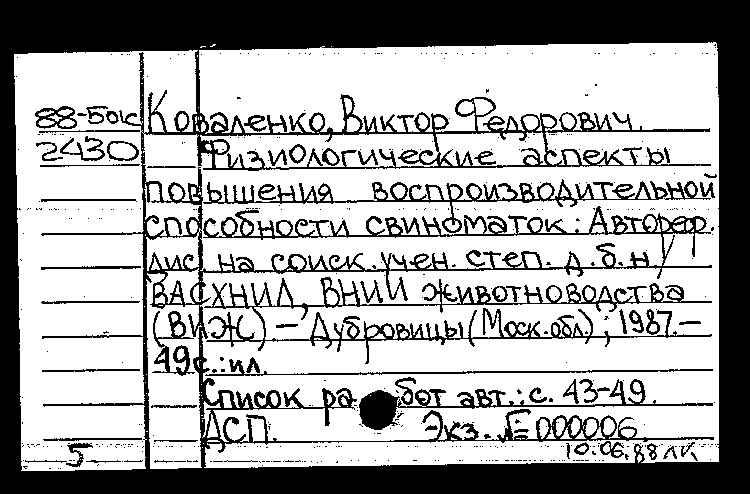 88-5ок Коваленко, Виктор Федорович.
2430 Физиологические аспекты
повышения воспроизводительной
способности свиноматок: Автореф.
дис. на соиск. учен. степ. д.б.н /
ВАСХНИЛ, ВНИИ животноводства
(ВИЖ) - Дубровицы (Моск. обл.), 1987.-
49 с.: ил.
Список работ авт.: с. 43-49.
ДСП. Экз. № 000006.
5 10.06.88 ЛК